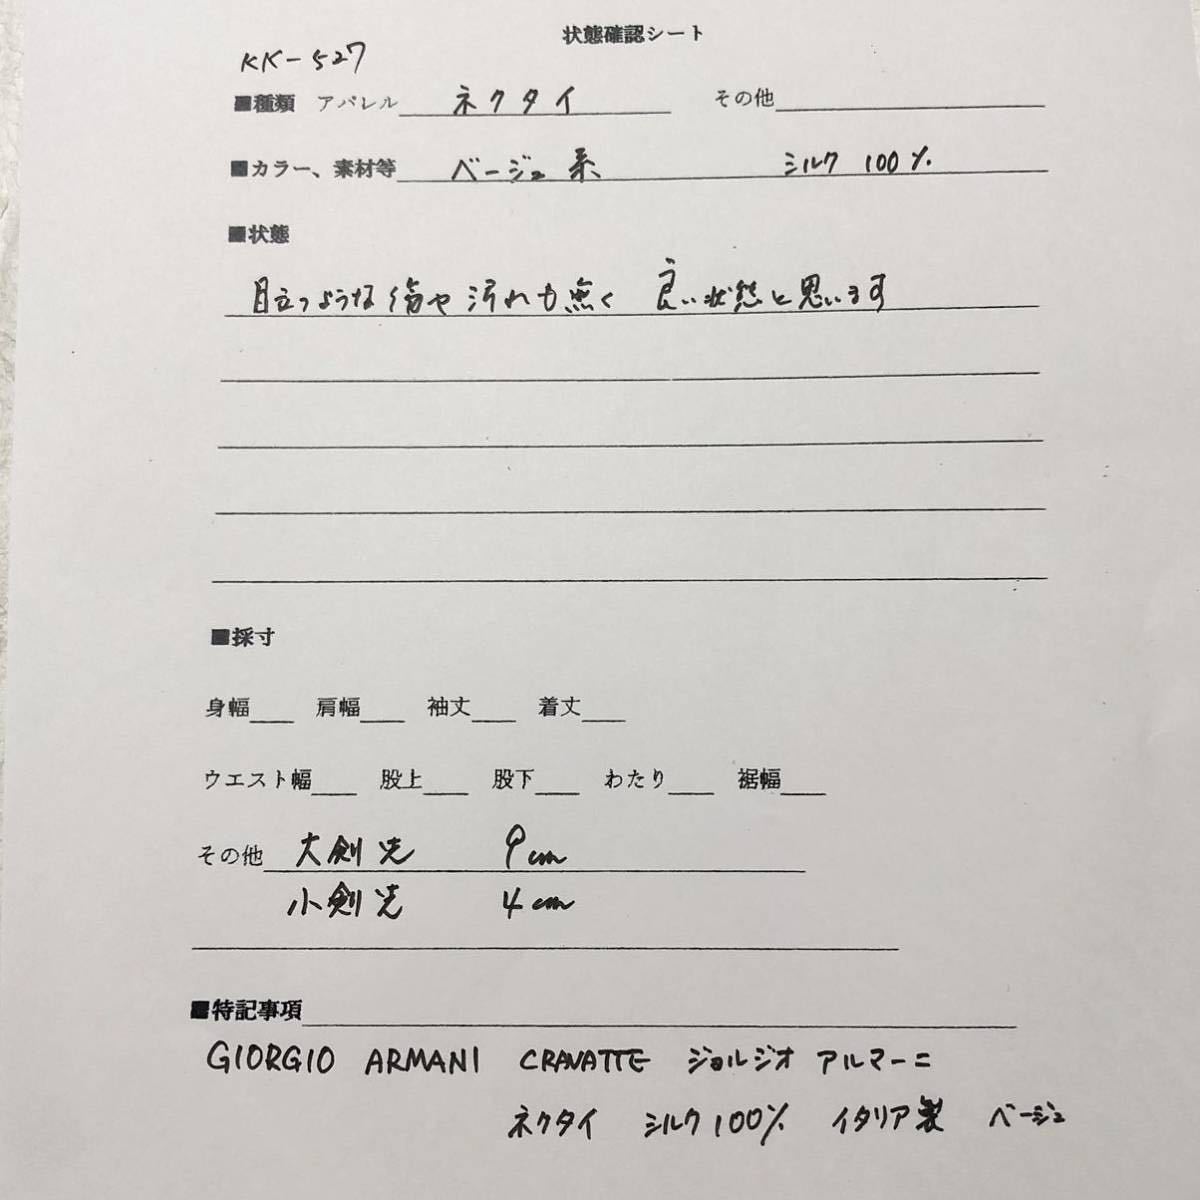 状態確認シート
KK-527
■種類 アパレル ネクタイ その他
■カラー、素材等 ベージュ系 シルク 100%
■状態
目立つような傷や汚れも無く 良い状態と思います
■採寸
身幅 肩幅 袖丈 着丈
ウエスト幅 股上 股下 わたり 裾幅
その他 大剣先 9cm
小剣先 4cm
■特記事項
GIORGIO ARMANI CRAVATTE ジョルジオ アルマーニ
ネクタイ シルク100% イタリア製 ベージュ